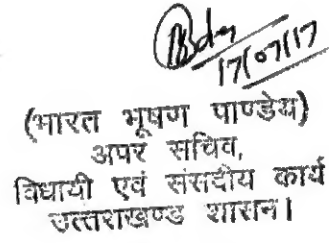 17/07/17
(भारत भूषण पाण्डेय)
अपर सचिव,
विधायी एवं संसदीय कार्य
उत्तराखण्ड शासन।